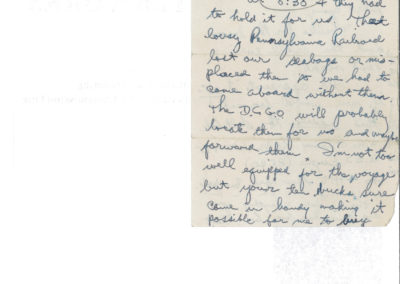 6:30 & they had
to hold it for us. That
lousy Pennsylvania Railroad
lost our seabags or mis-
placed them so we had to
come aboard without them.
The D.C.G.O will probably
locate them for us and maybe
forward them. I'm not too
well equipped for the voyage
but your ten bucks sure
came in handy making it
possible for me to buy